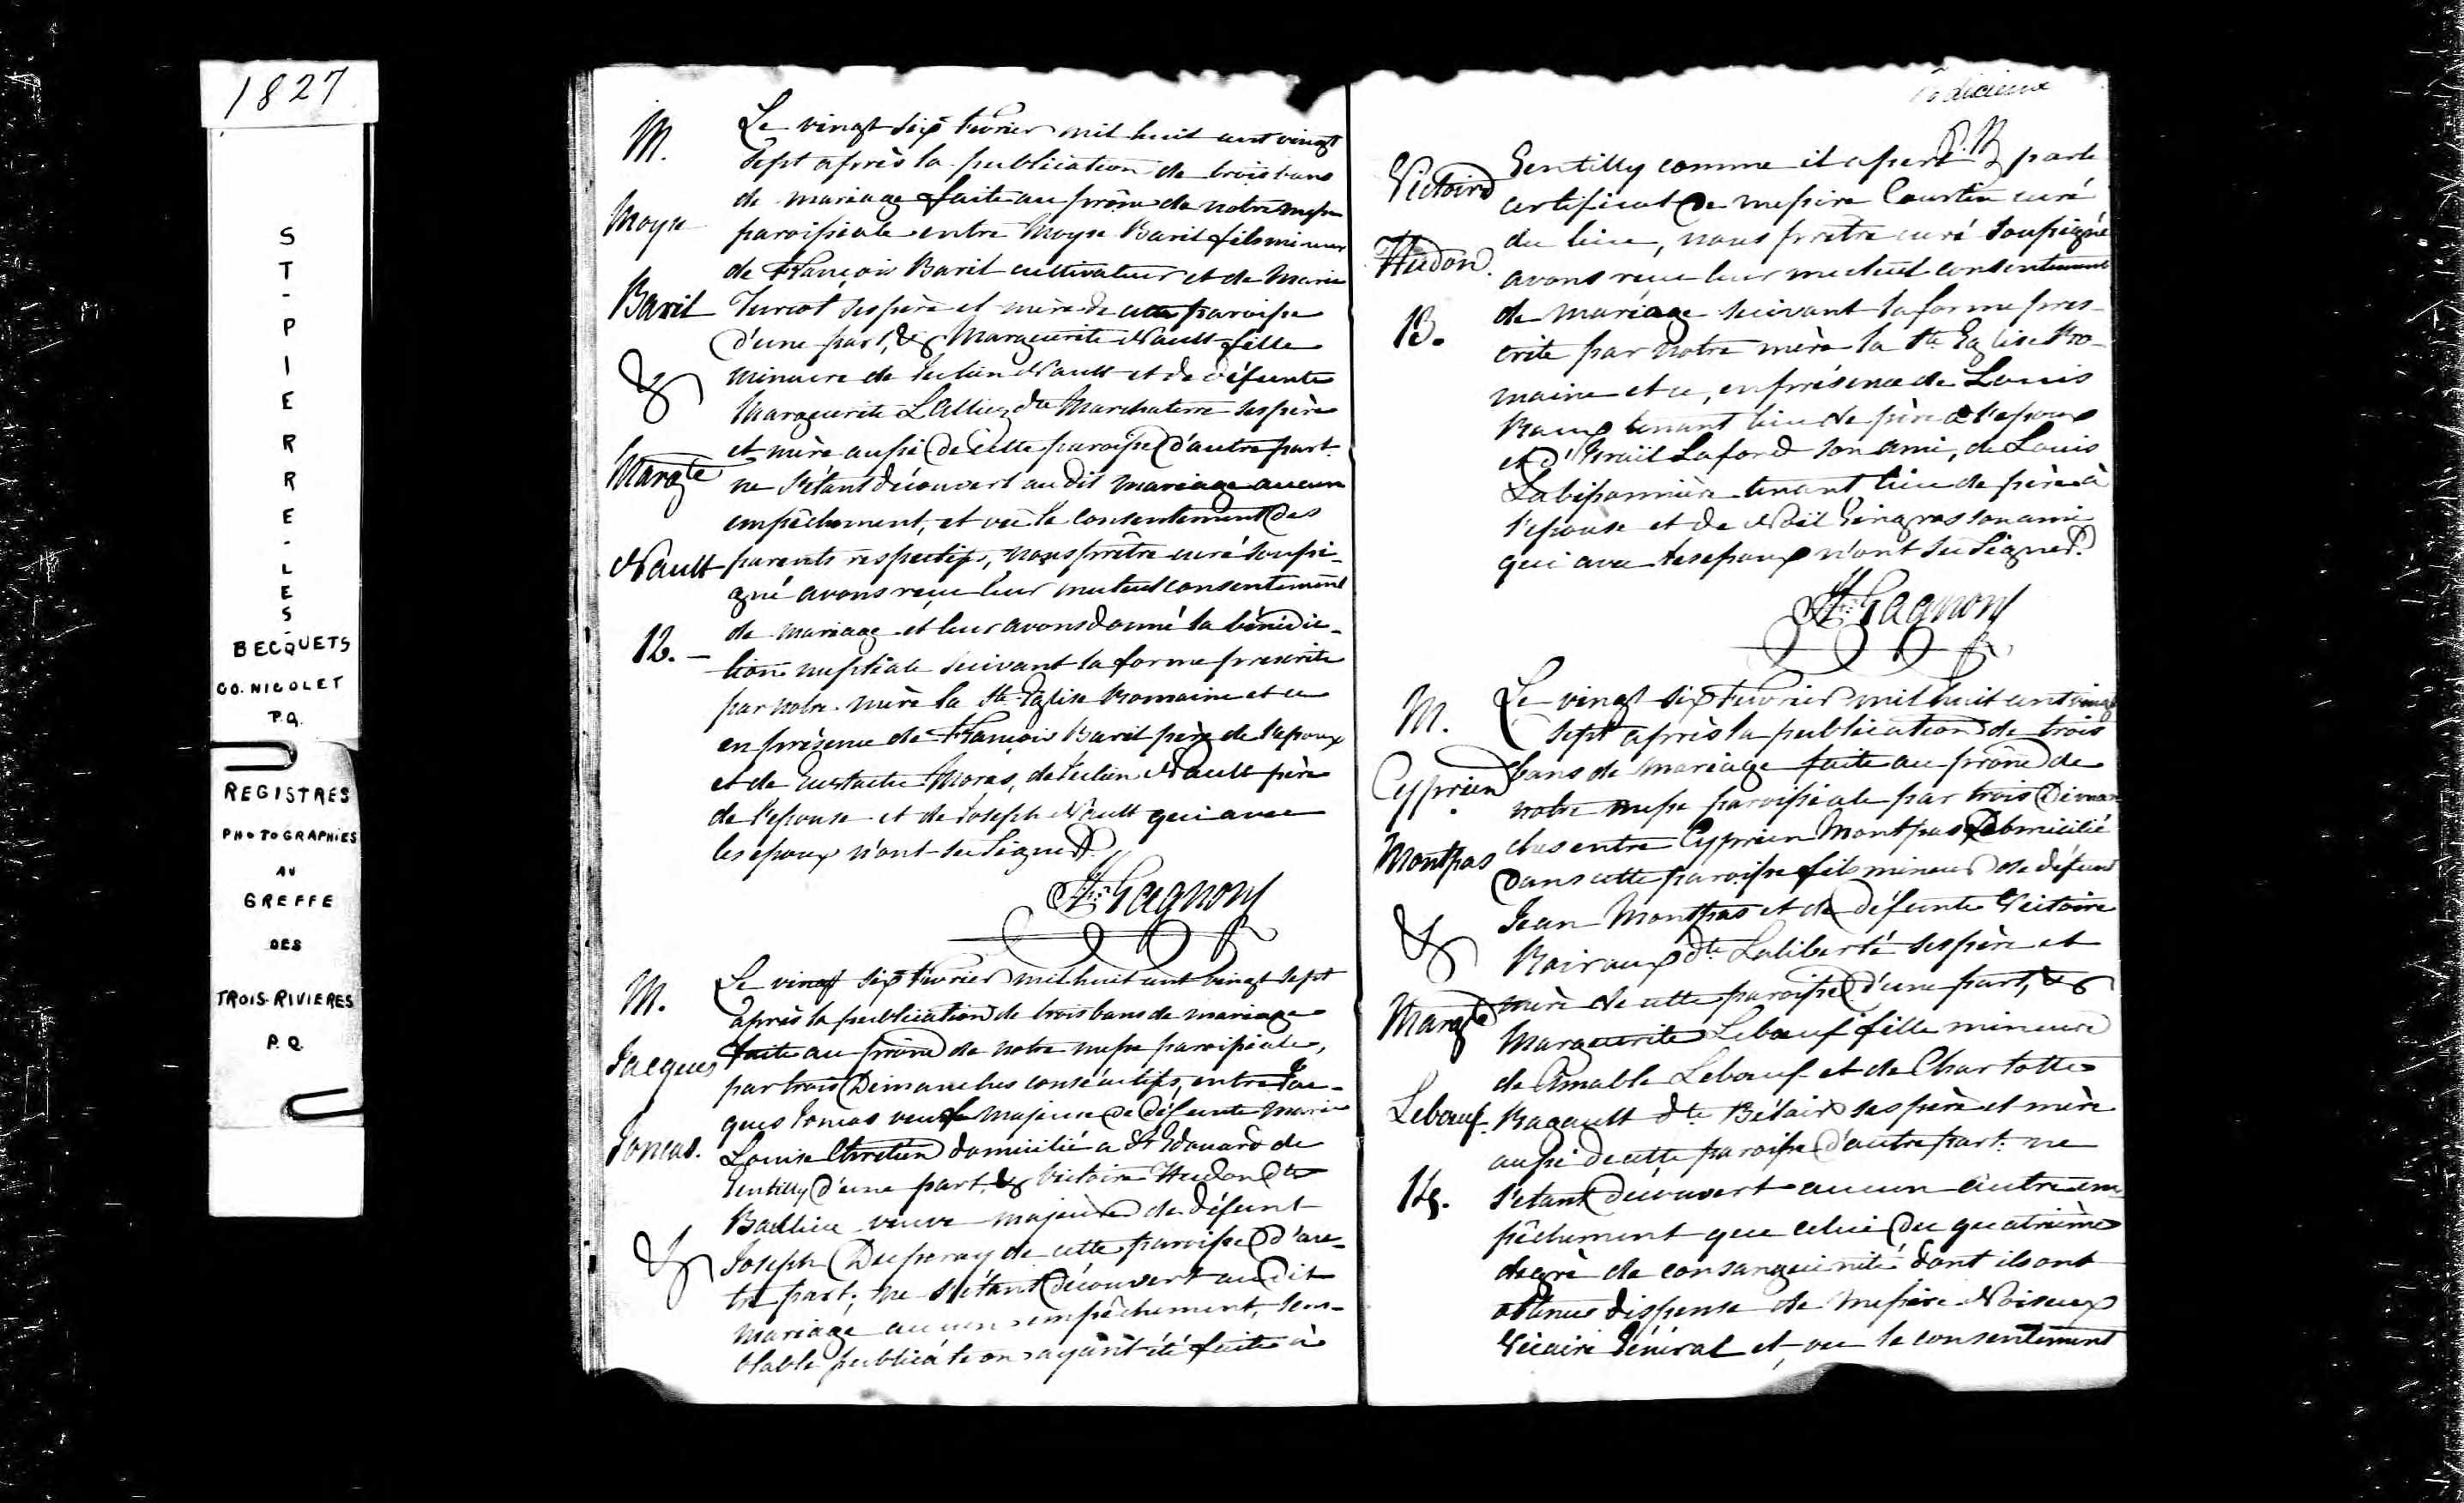 1827
ST-PIERRE-LES-
BECQUETS
CO. NICOLET
P.Q.
REGISTRES
PHOTOGRAPHIÉS
AU
GREFFE
DES
TROIS-RIVIERES
P.Q.
M.
Moyse
Baril
&
Margte
Nault
12.-
Le vingt six fevrier mil huit cent vingt
sept après la publication de trois bans
de mariage faite au prône de notre messe
paroissiale entre Moyse Baril fils mineur
de François Baril cultivateur et de Marie
Turcot ses père et mère de cette paroisse
d'une part, & Marguerite Nault fille
mineure de Julien Nault et de défunte
Marguerite Lallier dte Marchaterre ses père
et mère aussi de cette paroisse d'autre part.
ne s'étant découvert au dit mariage aucun
empêchement, et vu le consentement des
parents respectifs, nous prêtre curé soussi-
gné avons reçu leur mutuel consentement
de mariage et leur avons donné la bénédic-
tion nuptiale suivant la forme prescrite
par notre mère la Ste Eglise Romaine et ce
en présence de François Baril père de l'epoux
et de Eustache Moras, de Julien Nault père
de l'epouse et de Joseph Nault qui avec
les epoux n'ont su signer.
Gagnon
M.
Jacques
Joncas.
&
Le vingt six fevrier mil huit cent vingt sept
après la publication de trois bans de mariage
faite au prône de notre messe paroissiale,
par trois Dimanches consécutifs, entre Jac-
ques Joncas veuf majeur de défunte Marie
Louise Chretien domicilié a St Edouard de
Gentilly d'une part, & Victoire Hudon dte
Baulieu veuve majeure de défunt
Joseph de cette paroisse d'au-
tre part; ne s'étant découvert au dit
mariage aucun empêchement, sem-
blable publication ayant été faite à
dixieme
Victoire
Hudon.
13.
Gentilly comme il apert par le
certificat de messire Courtin curé
du lieu, nous prêtre curé soussigné
avons reçu leur mutuel consentement
de mariage suivant la forme pres-
crite par notre mère la Ste Eglise Ro-
maine et ce, en présence de Louis
tenant lieu de père à l'epoux
et d'Israïl Lafond son ami, de Louis
Labissonnière tenant lieu de père à
l'epouse et de Noël Gingras son ami
qui avec les epoux n'ont su signer.
Gagnon
M.
Cyprien
Montpas
&
Margte
Lebœuf.
14.
Le vingt six Fevrier mil huit cent vingt
sept après la publication de trois
bans de mariage faite au prône de
notre messe paroissiale par trois Diman
ches entre Cyprien Montpas domicilié
dans cette paroisse fils mineur de défunt
Jean Montpas et de défunte Victoire
dte Laliberté ses père et
mère de cette paroisse d'une part, &
Marguerite Lebœuf fille mineure
de Amable Lebœuf et de Charlotte
Ragault dte Bélair ses père et mère
aussi de cette paroisse d'autre part. ne
s'etant découvert aucun autre em-
pêchement que celui du quatrième
degré de consanguinité dont ils ont
obtenus dispense de Messire Noiseux
Vicaire Général et, vu le consentement